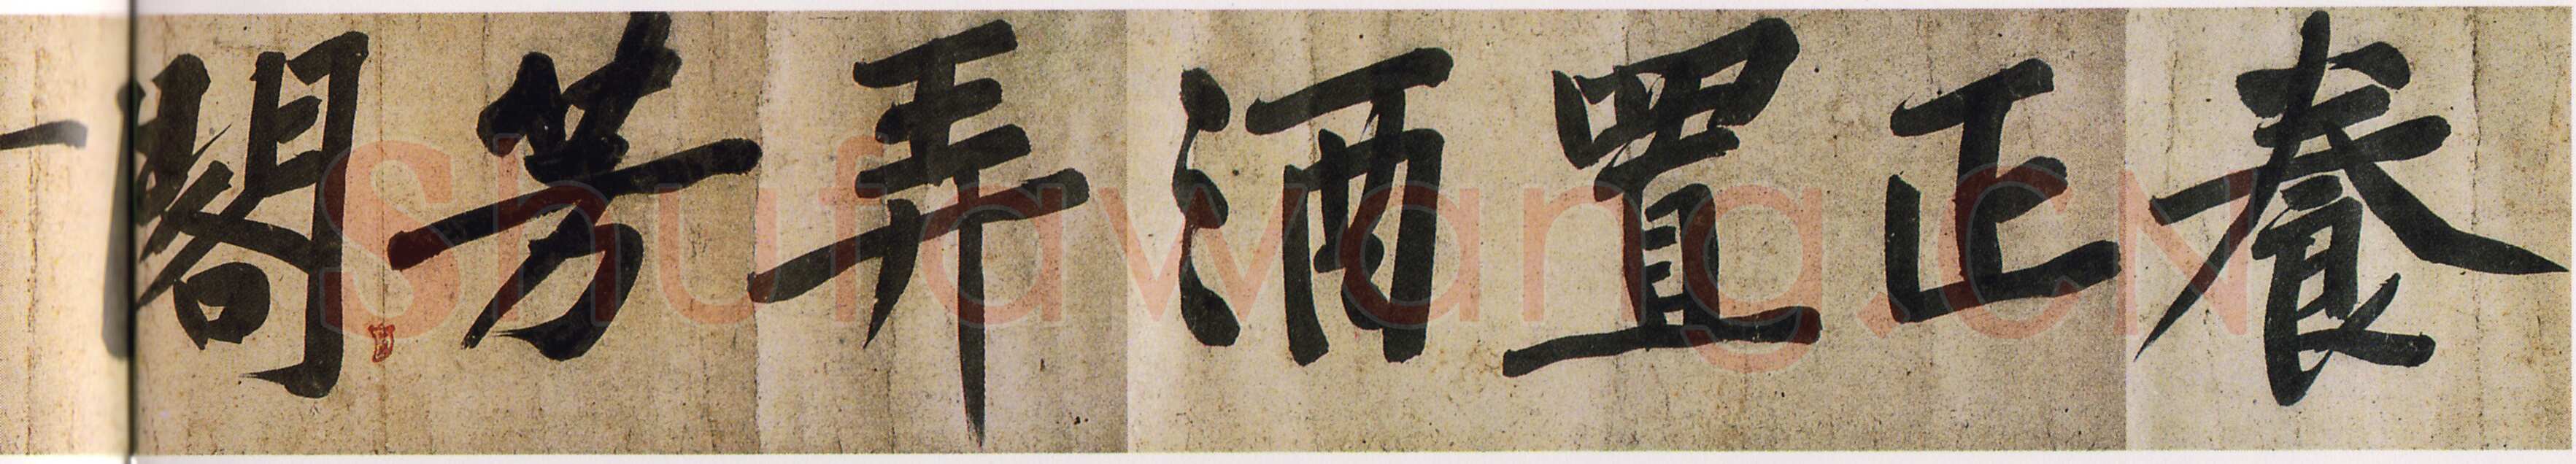 養正置酒弄芳閣
Shufawang.CN